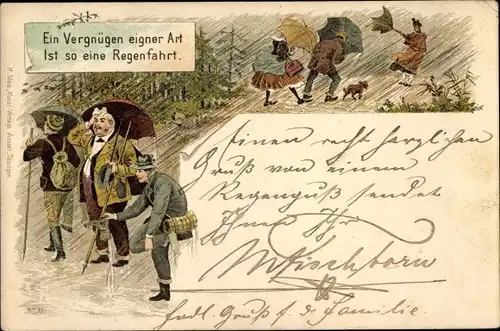 Ein Vergnügen eigner Art
Ist so eine Regenfahrt.
Einen recht herzlichen
Gruß von einem
Regenguß sendet
Ihnen Ihr
WFischborn
Fadl. Gruß s. d. Familie.